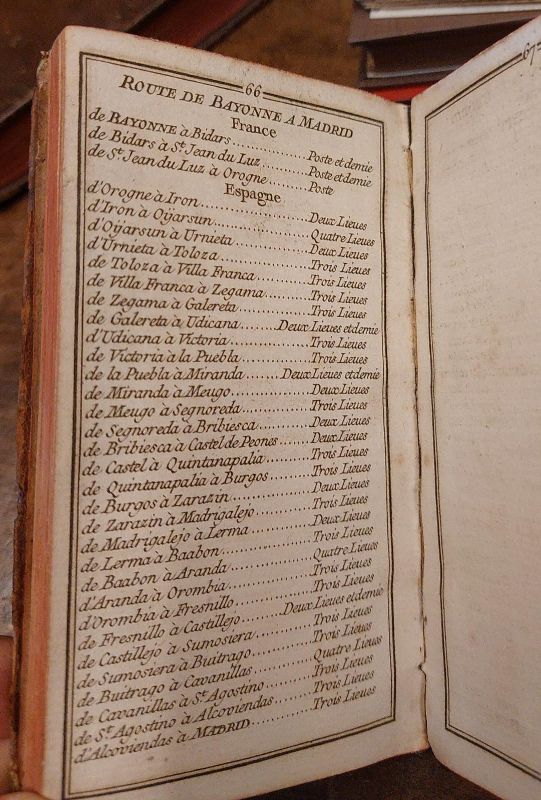 66
ROUTE DE BAYONNE A MADRID
France
de BAYONNE à Bidars..............Poste et demie
de Bidars à St Jean du Luz..........Poste et demie
de St Jean du Luz à Orogne.........Poste
Espagne
d'Orogne à Iron....................Deux Lieues
d'Iron à Oyarsun..................Quatre Lieues
d'Oyarsun à Urnieta..............Deux Lieues
d'Urnieta à Toloza................Trois Lieues
de Toloza à Villa Franca..........Trois Lieues
de Villa Franca à Zegama.........Trois Lieues
de Zegama à Galereta.............Trois Lieues
de Galereta à Udicana.......Deux Lieues et demie
d'Udicana à Victoria...............Trois Lieues
de Victoria à la Puebla............Trois Lieues
de la Puebla à Miranda.......Deux Lieues et demie
de Miranda à Meugo..............Deux Lieues
de Meugo à Segnoreda............Trois Lieues
de Segnoreda à Bribiesca.........Deux Lieues
de Bribiesca à Castel de Peones......Deux Lieues
de Castel à Quintanapalia.........Trois Lieues
de Quintanapalia à Burgos........Trois Lieues
de Burgos à Zarazin...............Deux Lieues
de Zarazin à Madrigalejo..........Trois Lieues
de Madrigalejo à Lerma...........Deux Lieues
de Lerma à Baabon................Trois Lieues
de Baabon à Aranda..............Quatre Lieues
d'Aranda à Orombia..............Trois Lieues
d'Orombia à Fresnillo.............Trois Lieues
de Fresnillo à Castillejo.......Deux Lieues et demie
de Castillejo à Sumosiera..........Trois Lieues
de Sumosiera à Buitrago..........Trois Lieues
de Buitrago à Cavanillas.........Quatre Lieues
de Cavanillas à St Agostino.......Trois Lieues
de St Agostino à Alcoviendas......Trois Lieues
d'Alcoviendas à MADRID..........Trois Lieues
67